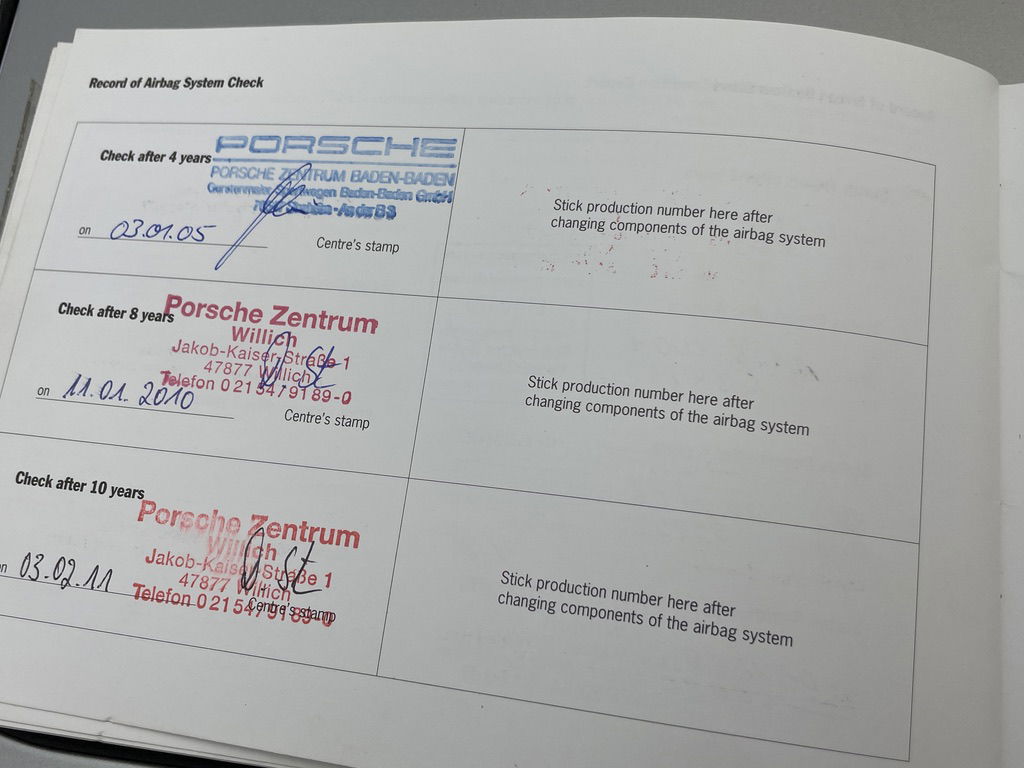 Record of Airbag System Check
Check after 4 years
PORSCHE
PORSCHE ZENTRUM BADEN-BADEN
Baden-Baden GmbH
An der B3
on 03.01.05
Centre's stamp
Stick production number here after
changing components of the airbag system
Check after 8 years
Porsche Zentrum
Willich
Jakob-Kaiser-Straße 1
47877 Willich
Telefon 0 21 54/9 1 89-0
on 11.01. 2010
Centre's stamp
Stick production number here after
changing components of the airbag system
Check after 10 years
Porsche Zentrum
Willich
Jakob-Kaiser-Straße 1
47877 Willich
Telefon 0 21 54/9 1 89-0
03.02.11
Centre's stamp
Stick production number here after
changing components of the airbag system